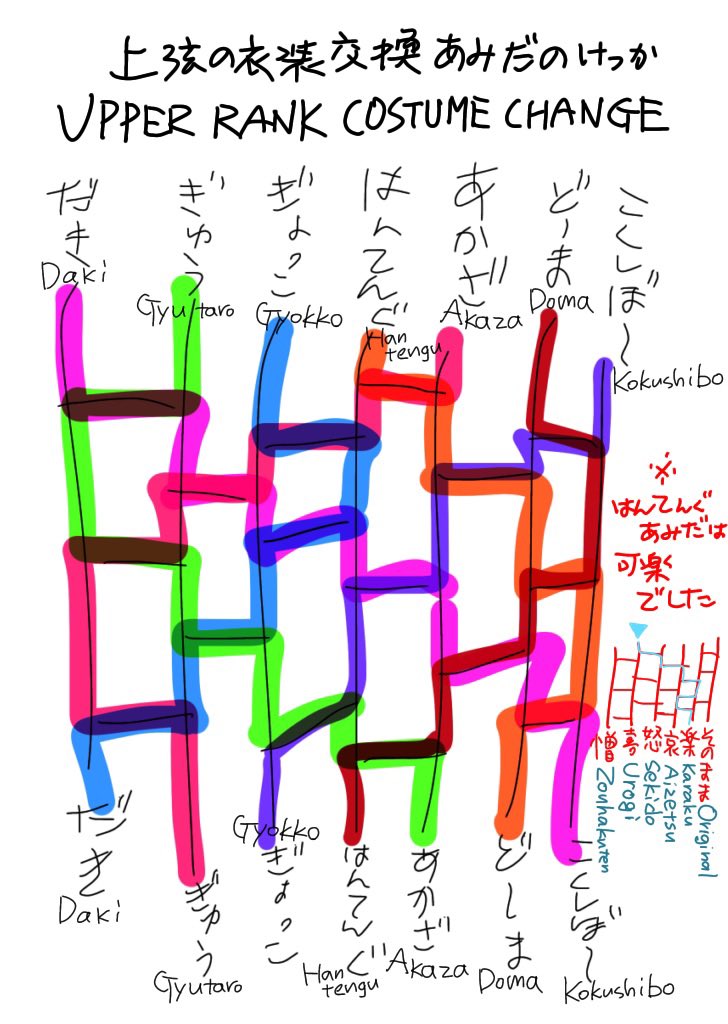 上弦の衣装交換あみだのけっか
UPPER RANK COSTUME CHANGE
だき
ぎゅう
ぎょっこ
はんてんぐ
あかざ
どーま
こくしぼ〜
Daki
Gyutaro
Gyokko
Han
tengu
Akaza
Doma
Kokushibo
※
はんてんぐ
あみだは
可楽
でした
憎
喜
怒
哀
楽
そのまま
Zouhakuten
Urogi
Sekido
Aizetsu
Karaku
Original
だき
ぎゅう
ぎょっこ
はんてんぐ
あかざ
どーま
こくしぼ〜
Daki
Gyutaro
Gyokko
Han
tengu
Akaza
Doma
Kokushibo